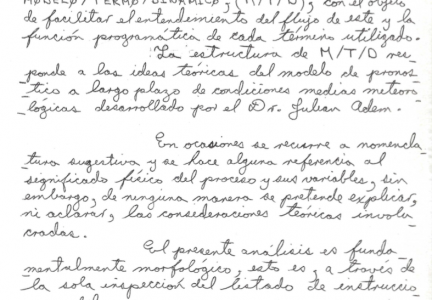 MODELO/TERMO/DINAMICO, (M/T/D), con el objeto
de facilitar el entendimiento del flujo de este y la
función programática de cada término utilizado.
La estructura de M/T/D res_
ponde a las ideas teóricas del modelo de pronos_
tico a largo plazo de condiciones medias meteoro_
lógicas desarrollado por el Dr. Julian Adem.
En ocasiones se recurre a nomencla_
tura sugestiva y se hace alguna referencia al
significado físico del proceso y sus variables, sin
embargo, de ninguna manera se pretende explicar,
ni aclarar, las consideraciones teóricas involu_
cradas.
El presente análisis es funda_
mentalmente morfológico, esto es, a través de
la sola inspección del listado de instruccio_